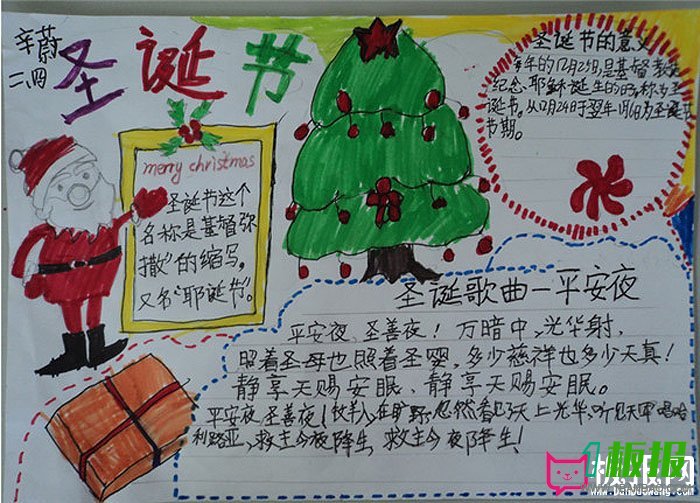 辛蔚
二、四
圣诞节
merry christmas
圣诞节这个
名称是基督弥
撒”的缩写。
又名“耶诞节”。
圣诞节的意义
每年的12月25日,是基督教徒
纪念耶稣诞生的日子,称为圣
诞节。从12月24日于翌年1月6日为圣诞节
节期。
圣诞歌曲—平安夜
平安夜、圣善夜!万暗中,光华射,
照着圣母也照着圣婴,多少慈祥也多少天真!
静享天赐安眠,静享天赐安眠。
平安夜,圣善夜!牧羊人,在旷野,忽然看见了天上光华,听见天军唱哈
利路亚,救主今夜降生,救主今夜降生!
板报网
www.banbaowang.com